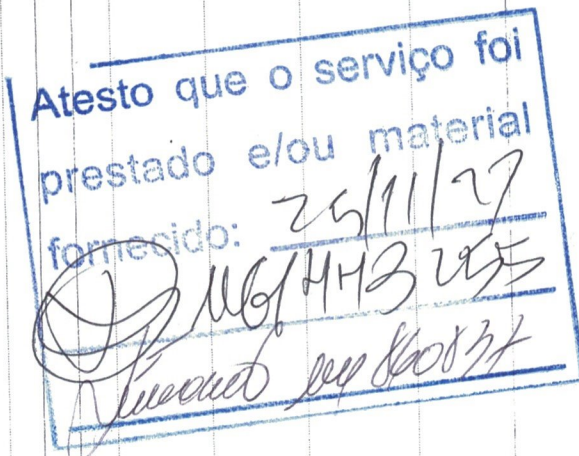 Atesto que o serviço foi
prestado e/ou material
fornecido: 25/11/27
443 255